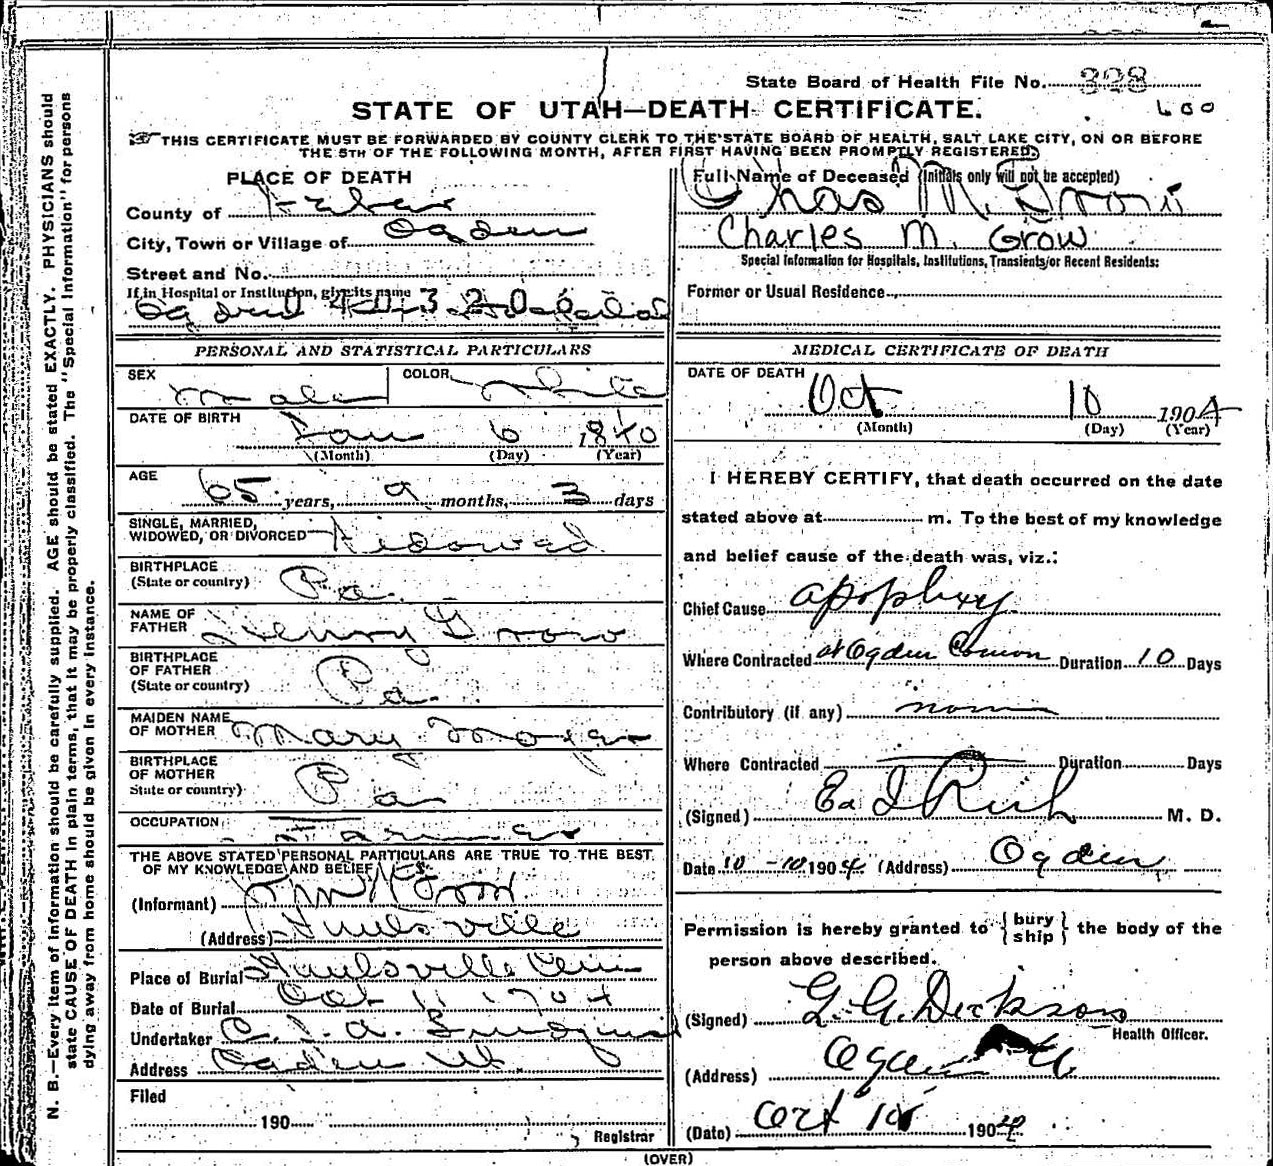 State Board of Health File No. 328
STATE OF UTAH—DEATH CERTIFICATE.
600
THIS CERTIFICATE MUST BE FORWARDED BY COUNTY CLERK TO THE STATE BOARD OF HEALTH, SALT LAKE CITY, ON OR BEFORE
THE 5TH OF THE FOLLOWING MONTH, AFTER FIRST HAVING BEEN PROMPTLY REGISTERED.
N. B.—Every item of information should be carefully supplied. AGE should be stated EXACTLY. PHYSICIANS should
state CAUSE OF DEATH in plain terms, that it may be properly classified. The "Special Information" for persons
dying away from home should be given in every instance.
PLACE OF DEATH
County of Weber
City, Town or Village of Ogden
Street and No.
If in Hospital or Institution, give its name
Ogden
Full Name of Deceased (Initials only will not be accepted)
Chas M. Grow
Charles M. Grow
Special Information for Hospitals, Institutions, Transients, or Recent Residents:
Former or Usual Residence
PERSONAL AND STATISTICAL PARTICULARS
SEX Male COLOR White
DATE OF BIRTH Jan 6 1840
(Month) (Day) (Year)
AGE 65 years, 9 months, 3 days
SINGLE, MARRIED,
WIDOWED, OR DIVORCED Widowed
BIRTHPLACE
(State or country) Pa.
NAME OF
FATHER Henry Grow
BIRTHPLACE
OF FATHER
(State or country) Pa.
MAIDEN NAME
OF MOTHER Mary Moyer
BIRTHPLACE
OF MOTHER
State or country) Pa
OCCUPATION Farmer
THE ABOVE STATED PERSONAL PARTICULARS ARE TRUE TO THE BEST
OF MY KNOWLEDGE AND BELIEF
(Informant) Grow
(Address) Huntsville
Place of Burial Huntsville Cem
Date of Burial Oct 11 1904
Undertaker C. J. A.
Address Ogden Ut.
Filed
190
Registrar
MEDICAL CERTIFICATE OF DEATH
DATE OF DEATH
Oct 10 1904
(Month) (Day) (Year)
I HEREBY CERTIFY, that death occurred on the date
stated above at m. To the best of my knowledge
and belief cause of the death was, viz.:
Chief Cause apoplexy
Where Contracted at Ogden Canon Duration 10 Days
Contributory (if any) none
Where Contracted Duration Days
(Signed) Ed I Rich M. D.
Date 10-10 1904 (Address) Ogden
Permission is hereby granted to { bury ship } the body of the
person above described.
(Signed) G. G. Dickson
Health Officer.
(Address) Ogden U
(Date) Oct 10 1904
(OVER)